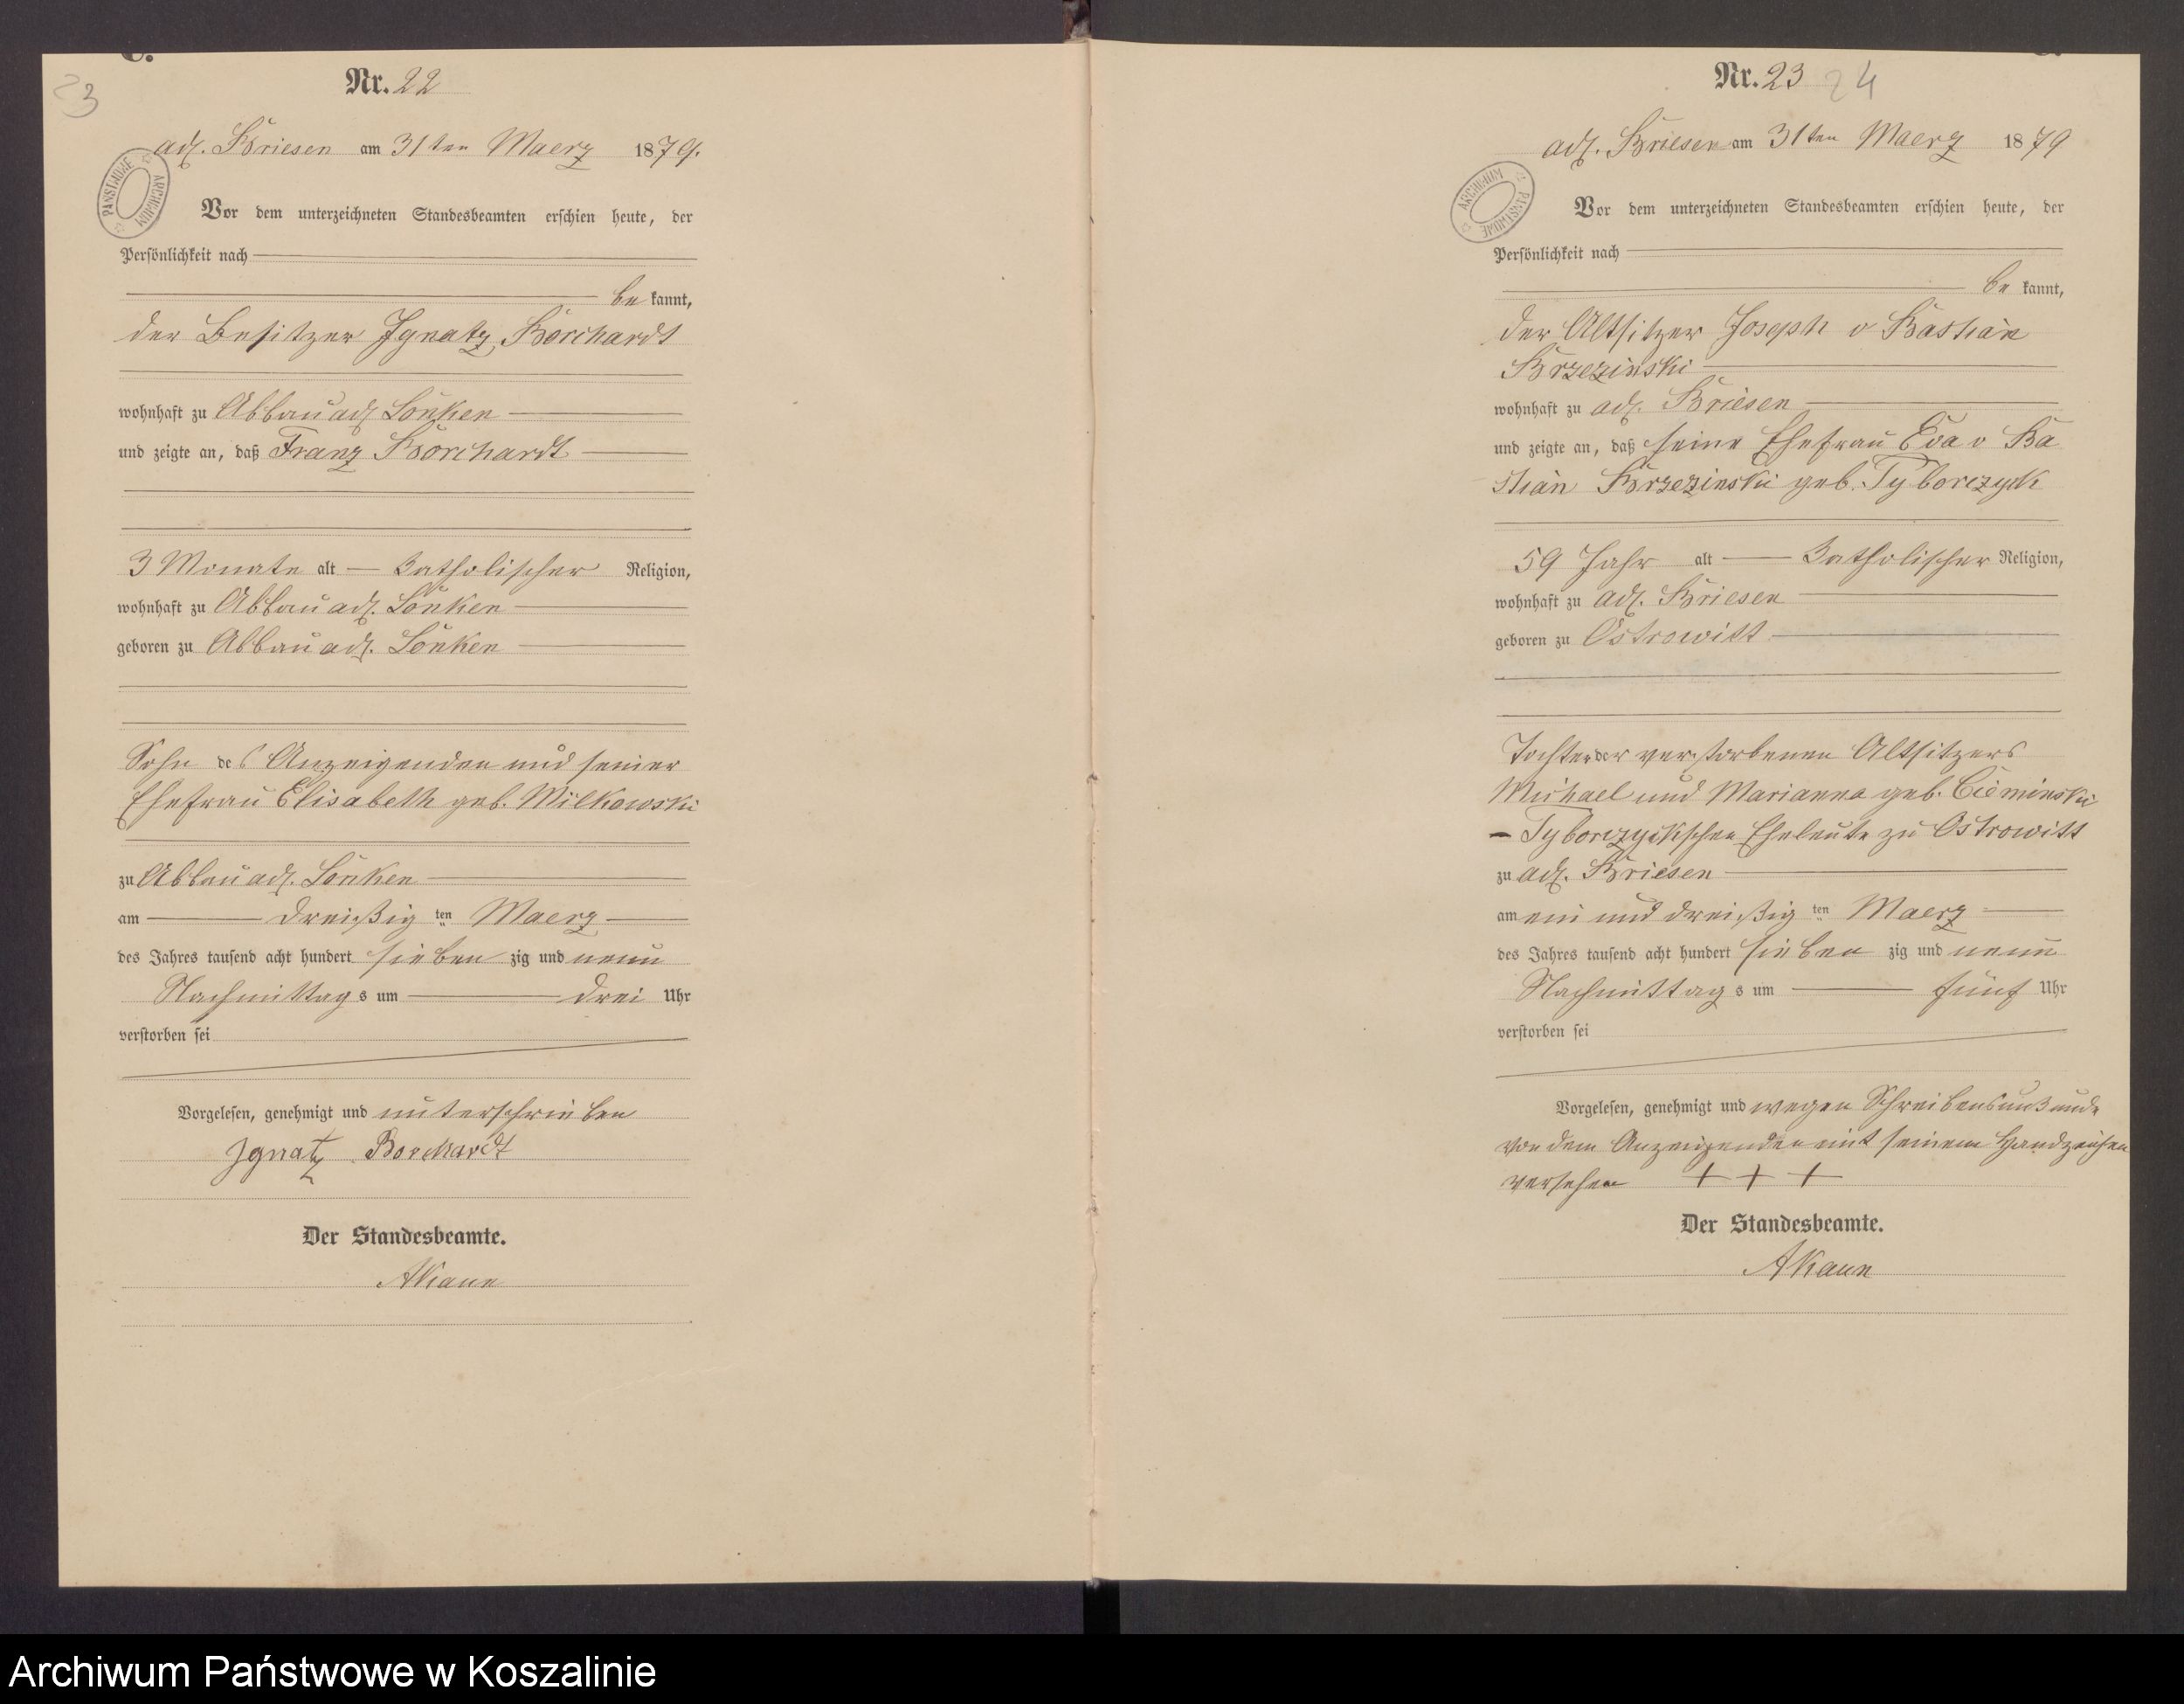 23
Nr. 22
adl. Briesen am 31ten Maerz 1879.
PAŃSTWOWE ARCHIWUM
Vor dem unterzeichneten Standesbeamten erschien heute, der
Persönlichkeit nach
be kannt,
der Besitzer Ignatz Borchardt
wohnhaft zu Abbau adl. Lonken
und zeigte an, daß Franz Borchardt
3 Monate alt katholischer Religion,
wohnhaft zu Abbau adl. Lonken
geboren zu Abbau adl. Lonken
Sohn des Anzeigenden und seiner
Ehefrau Elisabeth geb. Milkowski
zu Abbau adl. Lonken
am dreißig ten Maerz
des Jahres tausend acht hundert sieben zig und neun
Nachmittag s um drei Uhr
verstorben sei
Vorgelesen, genehmigt und unterschrieben
Ignatz Borchardt
Der Standesbeamte.
AKaun
Nr. 23 24
adl. Briesen am 31ten Maerz 1879
ARCHIWUM PAŃSTWOWE
Vor dem unterzeichneten Standesbeamten erschien heute, der
Persönlichkeit nach
be kannt,
der Altsitzer Joseph v Bastian
Brzezinski
wohnhaft zu adl. Briesen
und zeigte an, daß seine Ehefrau Eva v Ba
stian Brzezinski geb. Tyborczyck
59 Jahr alt katholischer Religion,
wohnhaft zu adl. Briesen
geboren zu Ostrowitt
Tochter der verstorbenen Altsitzers
Michael und Marianna geb. Cieminski
- Tyborczyckschen Eheleute zu Ostrowitt
zu adl. Briesen
am ein und dreißig ten Maerz
des Jahres tausend acht hundert sieben zig und neun
Nachmittag s um fünf Uhr
verstorben sei
Vorgelesen, genehmigt und wegen Schreibensunkunde
von dem Anzeigenden mit seinem Handzeichen
versehen + + +
Der Standesbeamte.
AKaun
Archiwum Państwowe w Koszalinie